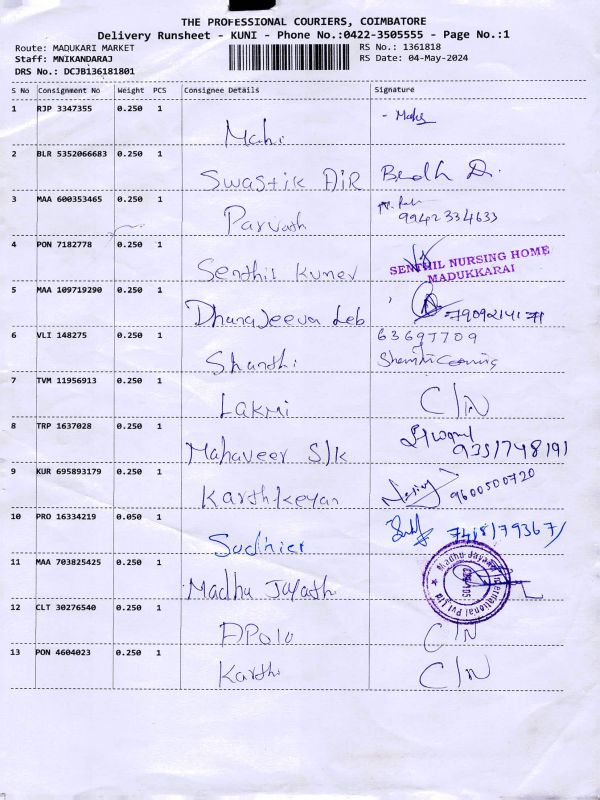 THE PROFESSIONAL COURIERS, COIMBATORE
Delivery Runsheet - KUNI - Phone No.:0422-3505555 - Page No.:1
Route: MADUKARI MARKET
Staff: MNIKANDARAJ
DRS No.: DCJB136181801
RS No.: 1361818
RS Date: 04-May-2024
S No Consignment No Weight PCS Consignee Details Signature
1 RJP 3347355 0.250 1 Mahi
2 BLR 5352066683 0.250 1 Swastik AIR
3 MAA 600353465 0.250 1 Parvath 9942334633
4 PON 7182778 0.250 1 Senthil Kumer SENTHIL NURSING HOME
MADUKKARAI
5 MAA 109719290 0.250 1 DhanaJeevan Leb
6 VLI 148275 0.250 1 Shanthi 63697709
7 TVM 11956913 0.250 1 Lakmi C/N
8 TRP 1637028 0.250 1 Mahaveer S/k
9 KUR 695893179 0.250 1 Karthikeyan 9600500720
10 PRO 16334219 0.050 1 Sudhier
11 MAA 703825425 0.250 1 Madhu Jayath
12 CLT 30276540 0.250 1 APolo C/N
13 PON 4604023 0.250 1 Karthi C/N